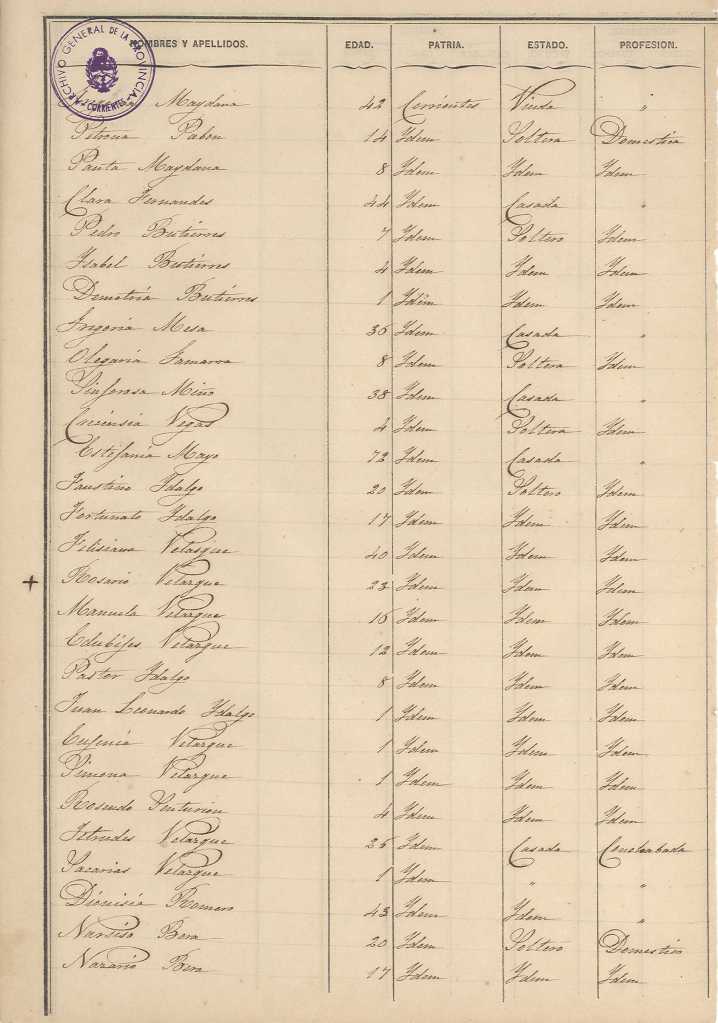 ARCHIVO GENERAL DE LA PROVINCIA
CORRIENTES
NOMBRES Y APELLIDOS. EDAD. PATRIA. ESTADO. PROFESION.
Maydana 42 Corrientes Viuda "
Petrona Pabon 14 Ydem Soltera Domestica
Panta Maydana 8 Ydem Ydem Ydem
Clara Fernandes 44 Ydem Casada "
Pedro Butierres 7 Ydem Soltero Ydem
Ysabel Butierres 4 Ydem Ydem Ydem
Demetria Butierres 1 Ydem Ydem Ydem
Gregoria Mesa 36 Ydem Casada "
Olegaria 8 Ydem Soltera Ydem
Sinforosa Miño 38 Ydem Casada "
Vegas 4 Ydem Soltera Ydem
Estefania Mayo 72 Ydem Casada "
Faustino Ydalgo 20 Ydem Soltero Ydem
Fortunato Ydalgo 17 Ydem Ydem Ydem
Felisiana Velasque 40 Ydem Ydem Ydem
+ Rosario Velazque 23 Ydem Ydem Ydem
Manuela Velazque 16 Ydem Ydem Ydem
Edubijes Velazque 12 Ydem Ydem Ydem
Pastor Ydalgo 8 Ydem Ydem Ydem
Juan Leonardo Ydalgo 1 Ydem Ydem Ydem
Eugenia Velazque 1 Ydem Ydem Ydem
Simona Velazque 1 Ydem Ydem Ydem
Rosendo Senturion 4 Ydem Ydem Ydem
Jetrudes Velazque 26 Ydem Casada Conchabada
Sacarias Velazque 1 Ydem " "
Dionisia Romero 43 Ydem Ydem "
Narsiso Bera 20 Ydem Soltero Domestico
Nazario Bera 17 Ydem Ydem Ydem